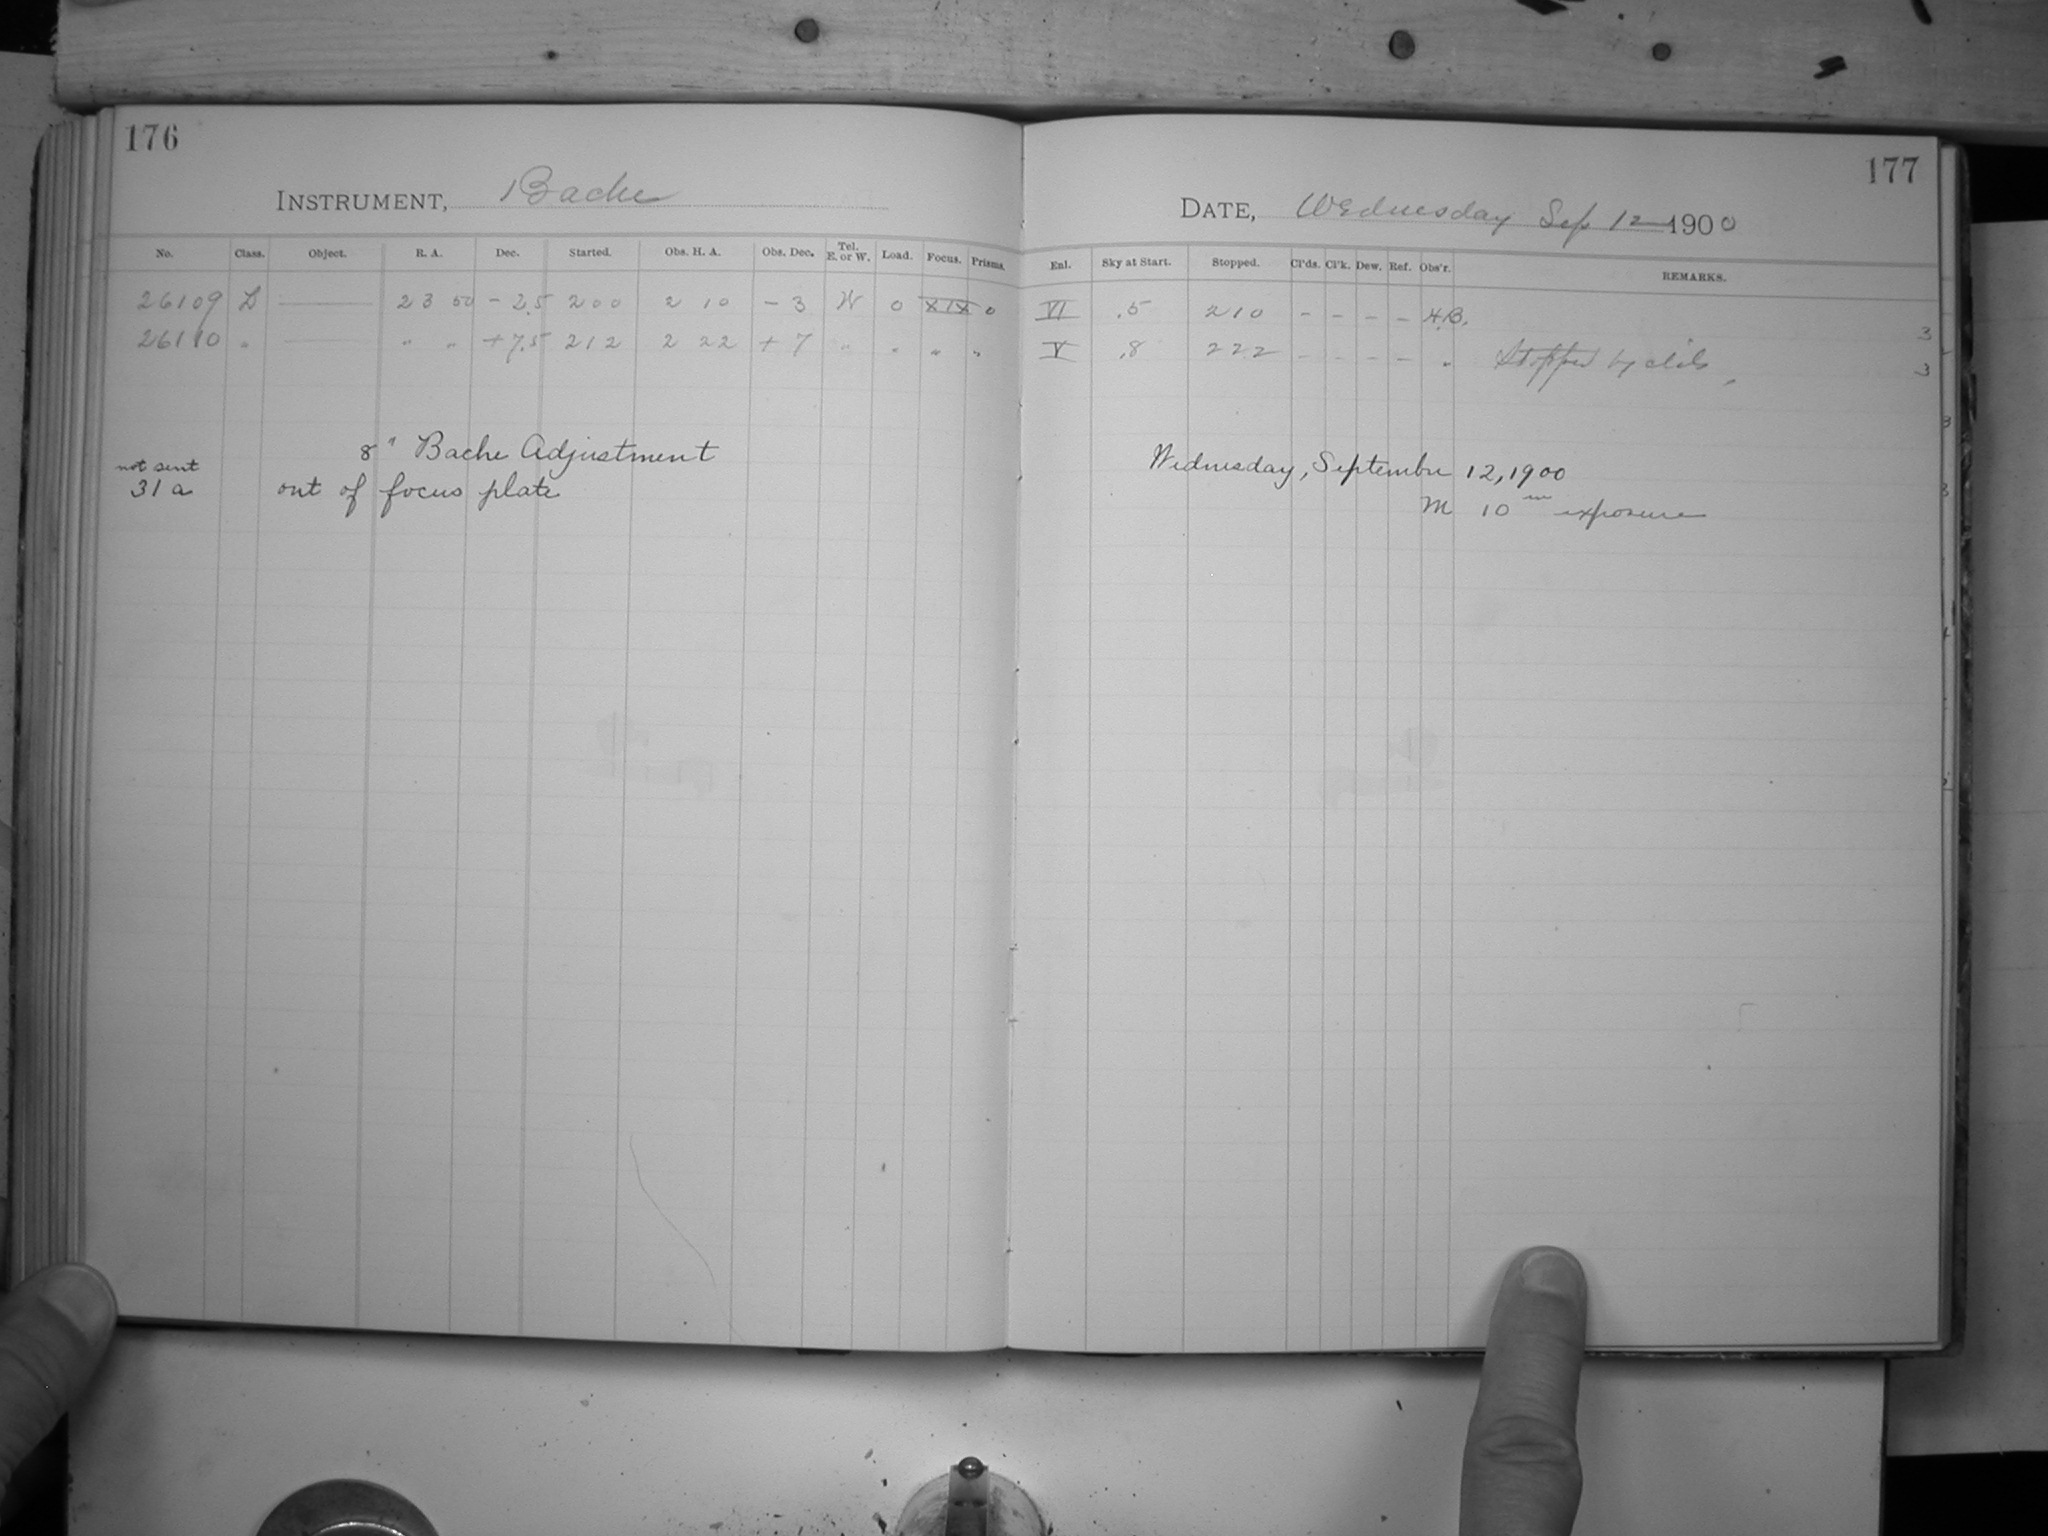 176
INSTRUMENT, Bache
No. Class. Object. R. A. Dec. Started. Obs. H. A. Obs. Dec. Tel. E. or W. Load. Focus. Prisms.
26109 L —— 23 50 - 2.5 200 2 10 - 3 W 0 XIX 0
26110 " —— " " + 7.5 212 2 22 + 7 " " " "
8" Bache Adjustment
not sent
31a out of focus plate
177
DATE, Wednesday Sep 12 1900
Enl. Sky at Start. Stopped. Cl'ds. Cl'k. Dew. Ref. Obs'r. REMARKS.
VI .5 210 - - - - H.B. 3
V .8 222 - - - - " Stopped by clds, 3
Wednesday, September 12, 1900
M 10 m exposure